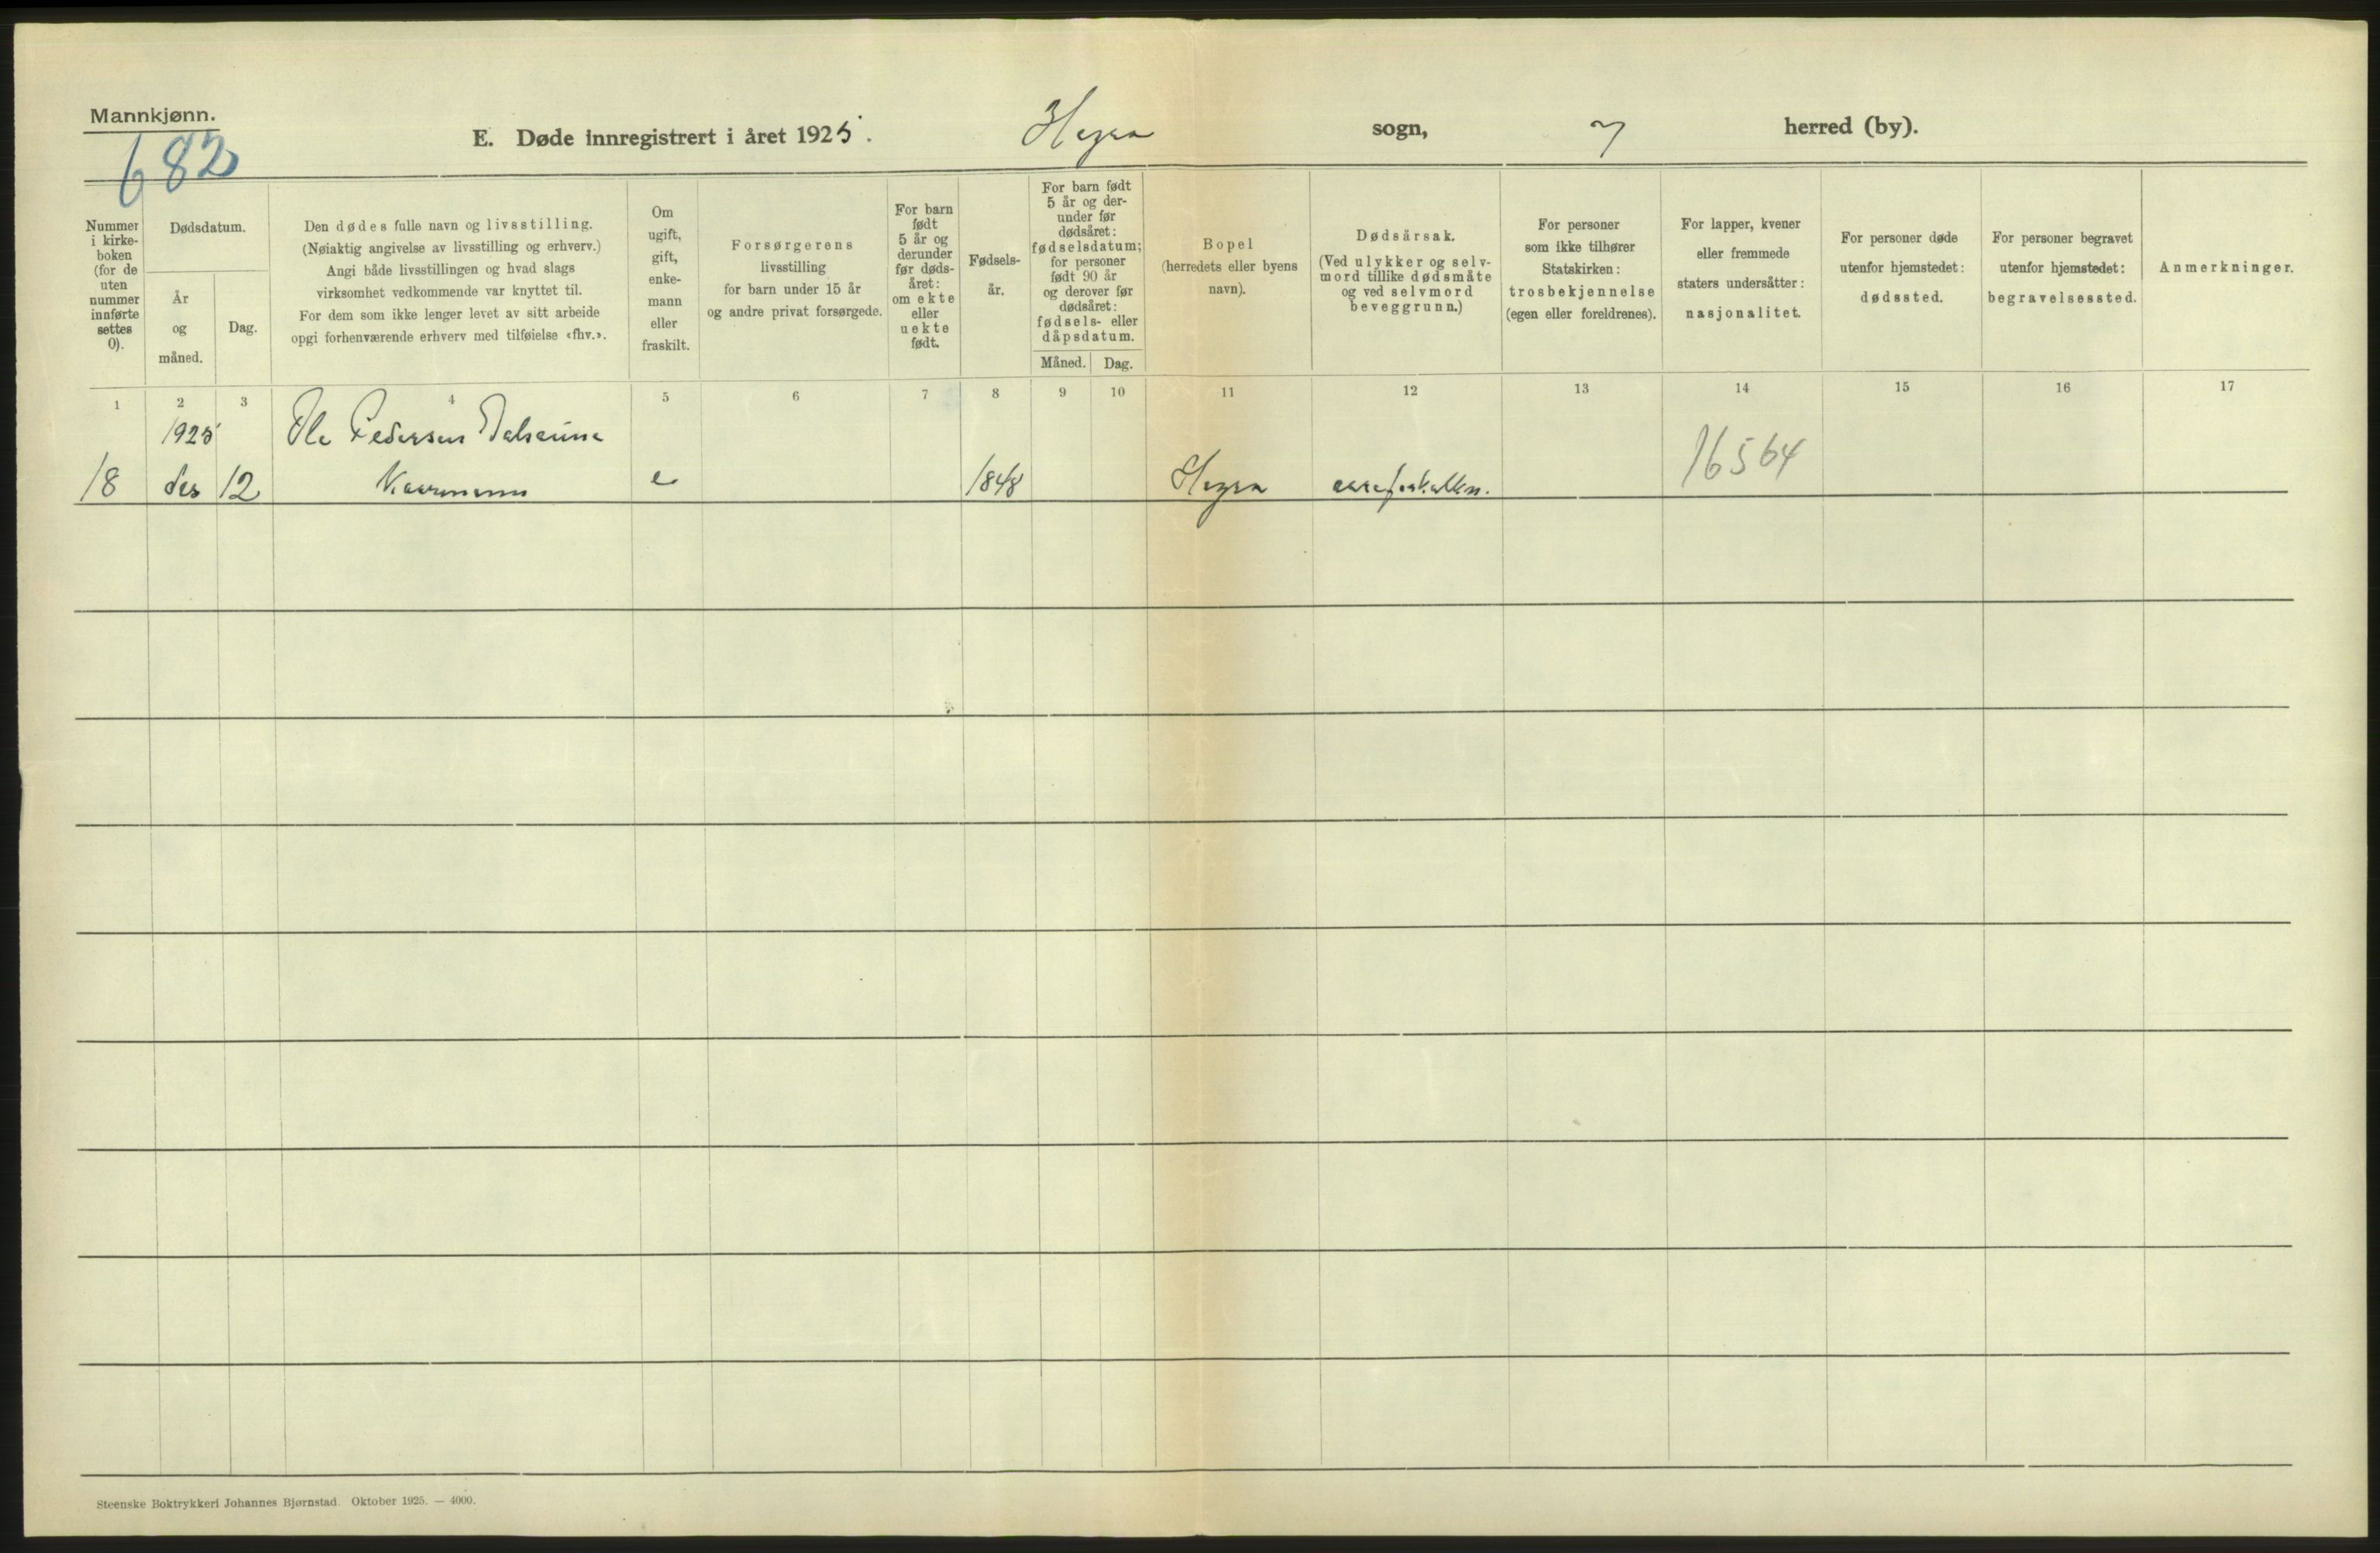 Mannkjønn.
682
E. Døde innregistrert i året 1925.
Hegra
sogn,
herred (by).
Nummer
i kirke-
boken
(for de
uten
nummer
innførte
settes
0).
Dødsdatum.
År
og
måned.
Dag.
Den dødes fulle navn og livsstilling.
(Nøiaktig angivelse av livsstilling og erhverv.)
Angi både livsstillingen og hvad slags
virksomhet vedkommende var knyttet til.
For dem som ikke lenger levet av sitt arbeide
opgi forhenværende erhverv med tilføielse «fhv.».
Om
ugift,
gift,
enke-
mann
eller
fraskilt.
Forsørgerens
livsstilling
for barn under 15 år
og andre privat forsørgede.
For barn
født
5 år og
derunder
før døds-
året:
om ekte
eller
uekte
født.
Fødsels-
år.
For barn født
5 år og der-
under før
dødsåret:
fødselsdatum;
for personer
født 90 år
og derover før
dødsåret:
fødsels- eller
dåpsdatum.
Måned. Dag.
Bopel
(herredets eller byens
navn).
Dødsårsak.
(Ved ulykker og selv-
mord tillike dødsmåte
og ved selvmord
beveggrunn.)
For personer
som ikke tilhører
Statskirken:
trosbekjennelse
(egen eller foreldrenes).
For lapper, kvener
eller fremmede
staters undersåtter:
nasjonalitet.
For personer døde
utenfor hjemstedet:
dødssted.
For personer begravet
utenfor hjemstedet:
begravelsessted.
Anmerkninger.
1 2 3 4 5 6 7 8 9 10 11 12 13 14 15 16 17
1925 Ole Pedersen
18 des 12 e 1848 Hegra 16564
Steenske Boktrykkeri Johannes Bjørnstad. Oktober 1925. — 4000.